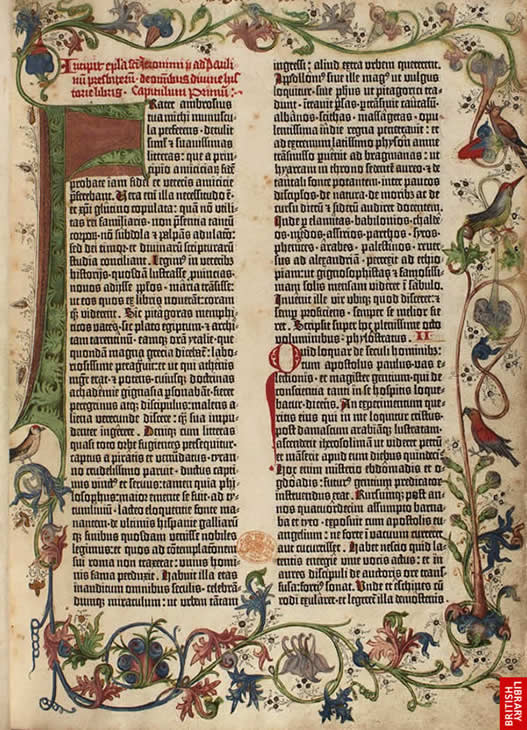 Incipit epistola sancti iheronimi ad Pauli
nū presbiterū de omnibus divine his
torie libris. Capitulum primū:
FRater ambrosius
tua michi munuscu
la preferens, detulit
simł et suauissimas
litteras: que a prin
cipio amiciciaꝝ fidē
probate iam fidei et veteris amicicie
p̄ferebant. Vera eni illa necessitudo ē.
et xp̄i glutino copulata: quā nō utili
tas rei familiaris. non p̄sentia tantū
corpoꝝ. nō subdola et palpās adulacō:
sed dei timor. et diuinarū scripturarū
studia conciliant. Legim⁹ in veteribꝫ
historijs. quosdā lustrasse prouincias.
nouos adijsse pp̄los. maria trāsisse:
ut eos quos ex libris nouerāt: coram
qꝫ viderent. Sic pitagoras memphi
ticos vates. sic plato egiptum. et archi
tam tarentinū. eamqꝫ orā ytalie. que
quondā magna grecia dicebat̄. labo
riosissime peragrauit: et ut qui athenis
mḡr erat. et potens. cuiusqꝫ doctrinas
achademie gignasia p̄sonabāt: fieret
peregrinus atqꝫ discipulus: malens a
liena verecunde discere: qꝫ sua impu
denter ingerere. Deniqꝫ cum litteras
quasi toto orbe fugientes persequitur
captus a piratis et venundatus: tyran
no crudelissimo paruit. ductus capti
uus vinct⁹ et seruus: tamen quia phi
losophus: maior emente se fuit. ad ty
tumliuiū. lacteo eloquentie fonte ma
nantem: de ultimis hispanie galliarū
qꝫ finibus quosdam venisse nobiles
legimus: et quos ad cōtemplationē
sui roma non traxerat: unius homi
nis fama perduxit. Habuit illa etas
inauditum omnibus seculis. celebrā
dumqꝫ miraculum: ut urbem tātam
ingressi: aliud extra urbem quererent.
Apolloni⁹ siue ille mag⁹ ut vulgus
loquitur. siue ph̄us ut pitagorici tra
dunt. ītrauit p̄sas. ptrāsiuit caucasū.
albanos. scithas. massagetas. opu
lentissima indie regna penetrauit: et
ad extremum latissimo physon amne
trāsmisso puenit ad bragmanas: ut
hyarcam in throno sedentē aureo. et de
tantali fonte potantem. inter paucos
discipl̄os. de natura. de moribꝫ ac de
cursu dierū et siderū audiret docentem.
Inde p elamitas. babilonios. chalde
os. medos. assirios. parthos. syros.
phenices. arabes. palestinos. reuer
sus ad alexandriā. perrexit ad ethio
piam: ut gignosophistas et famosissi
mam solis mensam videret ī sabulo.
Inuenit ille vir ubiqꝫ quod disceret: et
semp proficiens. semper se melior fie
ret. Scripsit super hoc plenissime octo
voluminibus. phylostratus. II
Quid loquar de seculi hominibꝫ:
cum apostolus paulus. vas e
lectionis. et magister gentium. qui de
conscientia tanti in se hospitis loque
batur. dicēs. An experimentum que
ritis eius qui in me loquitur cristus.
post damascum arabiāqꝫ lustratam:
ascenderit iherosolimā ut videret petrū
et māserit apud eum diebus quindeci.
Hoc enim misterio ebdomadis et o
gdoadis: futur⁹ gentium predicator
instruendus erat. Rursumqꝫ post an
nos quatuordecim assumpto barna
ba et tyto. exposuit cum apostolis eu
angelium: ne forte ī vacuum curreret
aut cucurrisset. Habet nescio quid la
tentis energie viue vocis actus: et in
aures discipuli de auctoris ore trans
fusa: fortiꝰ sonat. Unde et eschines cū
rodi exularet. et legeret̄ illa demostenis
BRITISH
LIBRARY